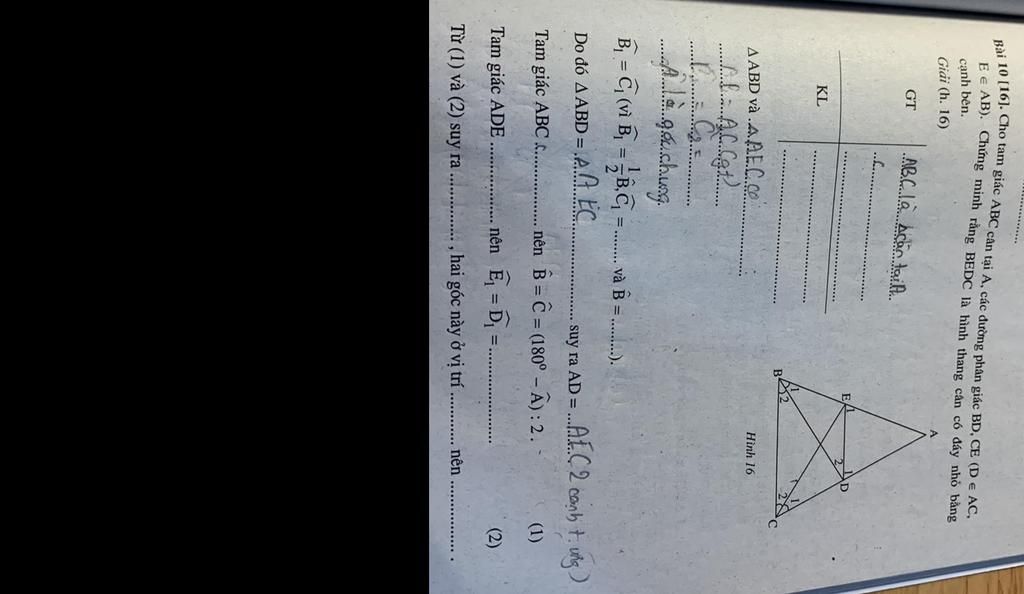 Bài 10 [16]. Cho tam giác ABC cân tại A, các đường phân giác BD, CE (D ∈ AC,
E ∈ AB). Chứng minh rằng BEDC là hình thang cân có đáy nhỏ bằng
cạnh bên.
Giải (h. 16)
GT ..ABC là Δcân tại A..
KL
A
E 1
2 1 D
B 1 2
1 2 C
Hình 16
Δ ABD và ...ΔAEC có
AB = AC (gt)
 là góc chung
B̂₁ = Ĉ₁ (vì B̂₁ = 1/2 B̂, Ĉ₁ = ........ và B̂ = .........).
Do đó Δ ABD = ..ΔAEC.................... suy ra AD = ....AE (2 cạnh t.ứng)
Tam giác ABC ................ nên B̂ = Ĉ = (180⁰ − Â) : 2 . (1)
Tam giác ADE .................. nên Ê₁ = D̂₁ = .................... (2)
Từ (1) và (2) suy ra .............. , hai góc này ở vị trí ............ nên ................ .